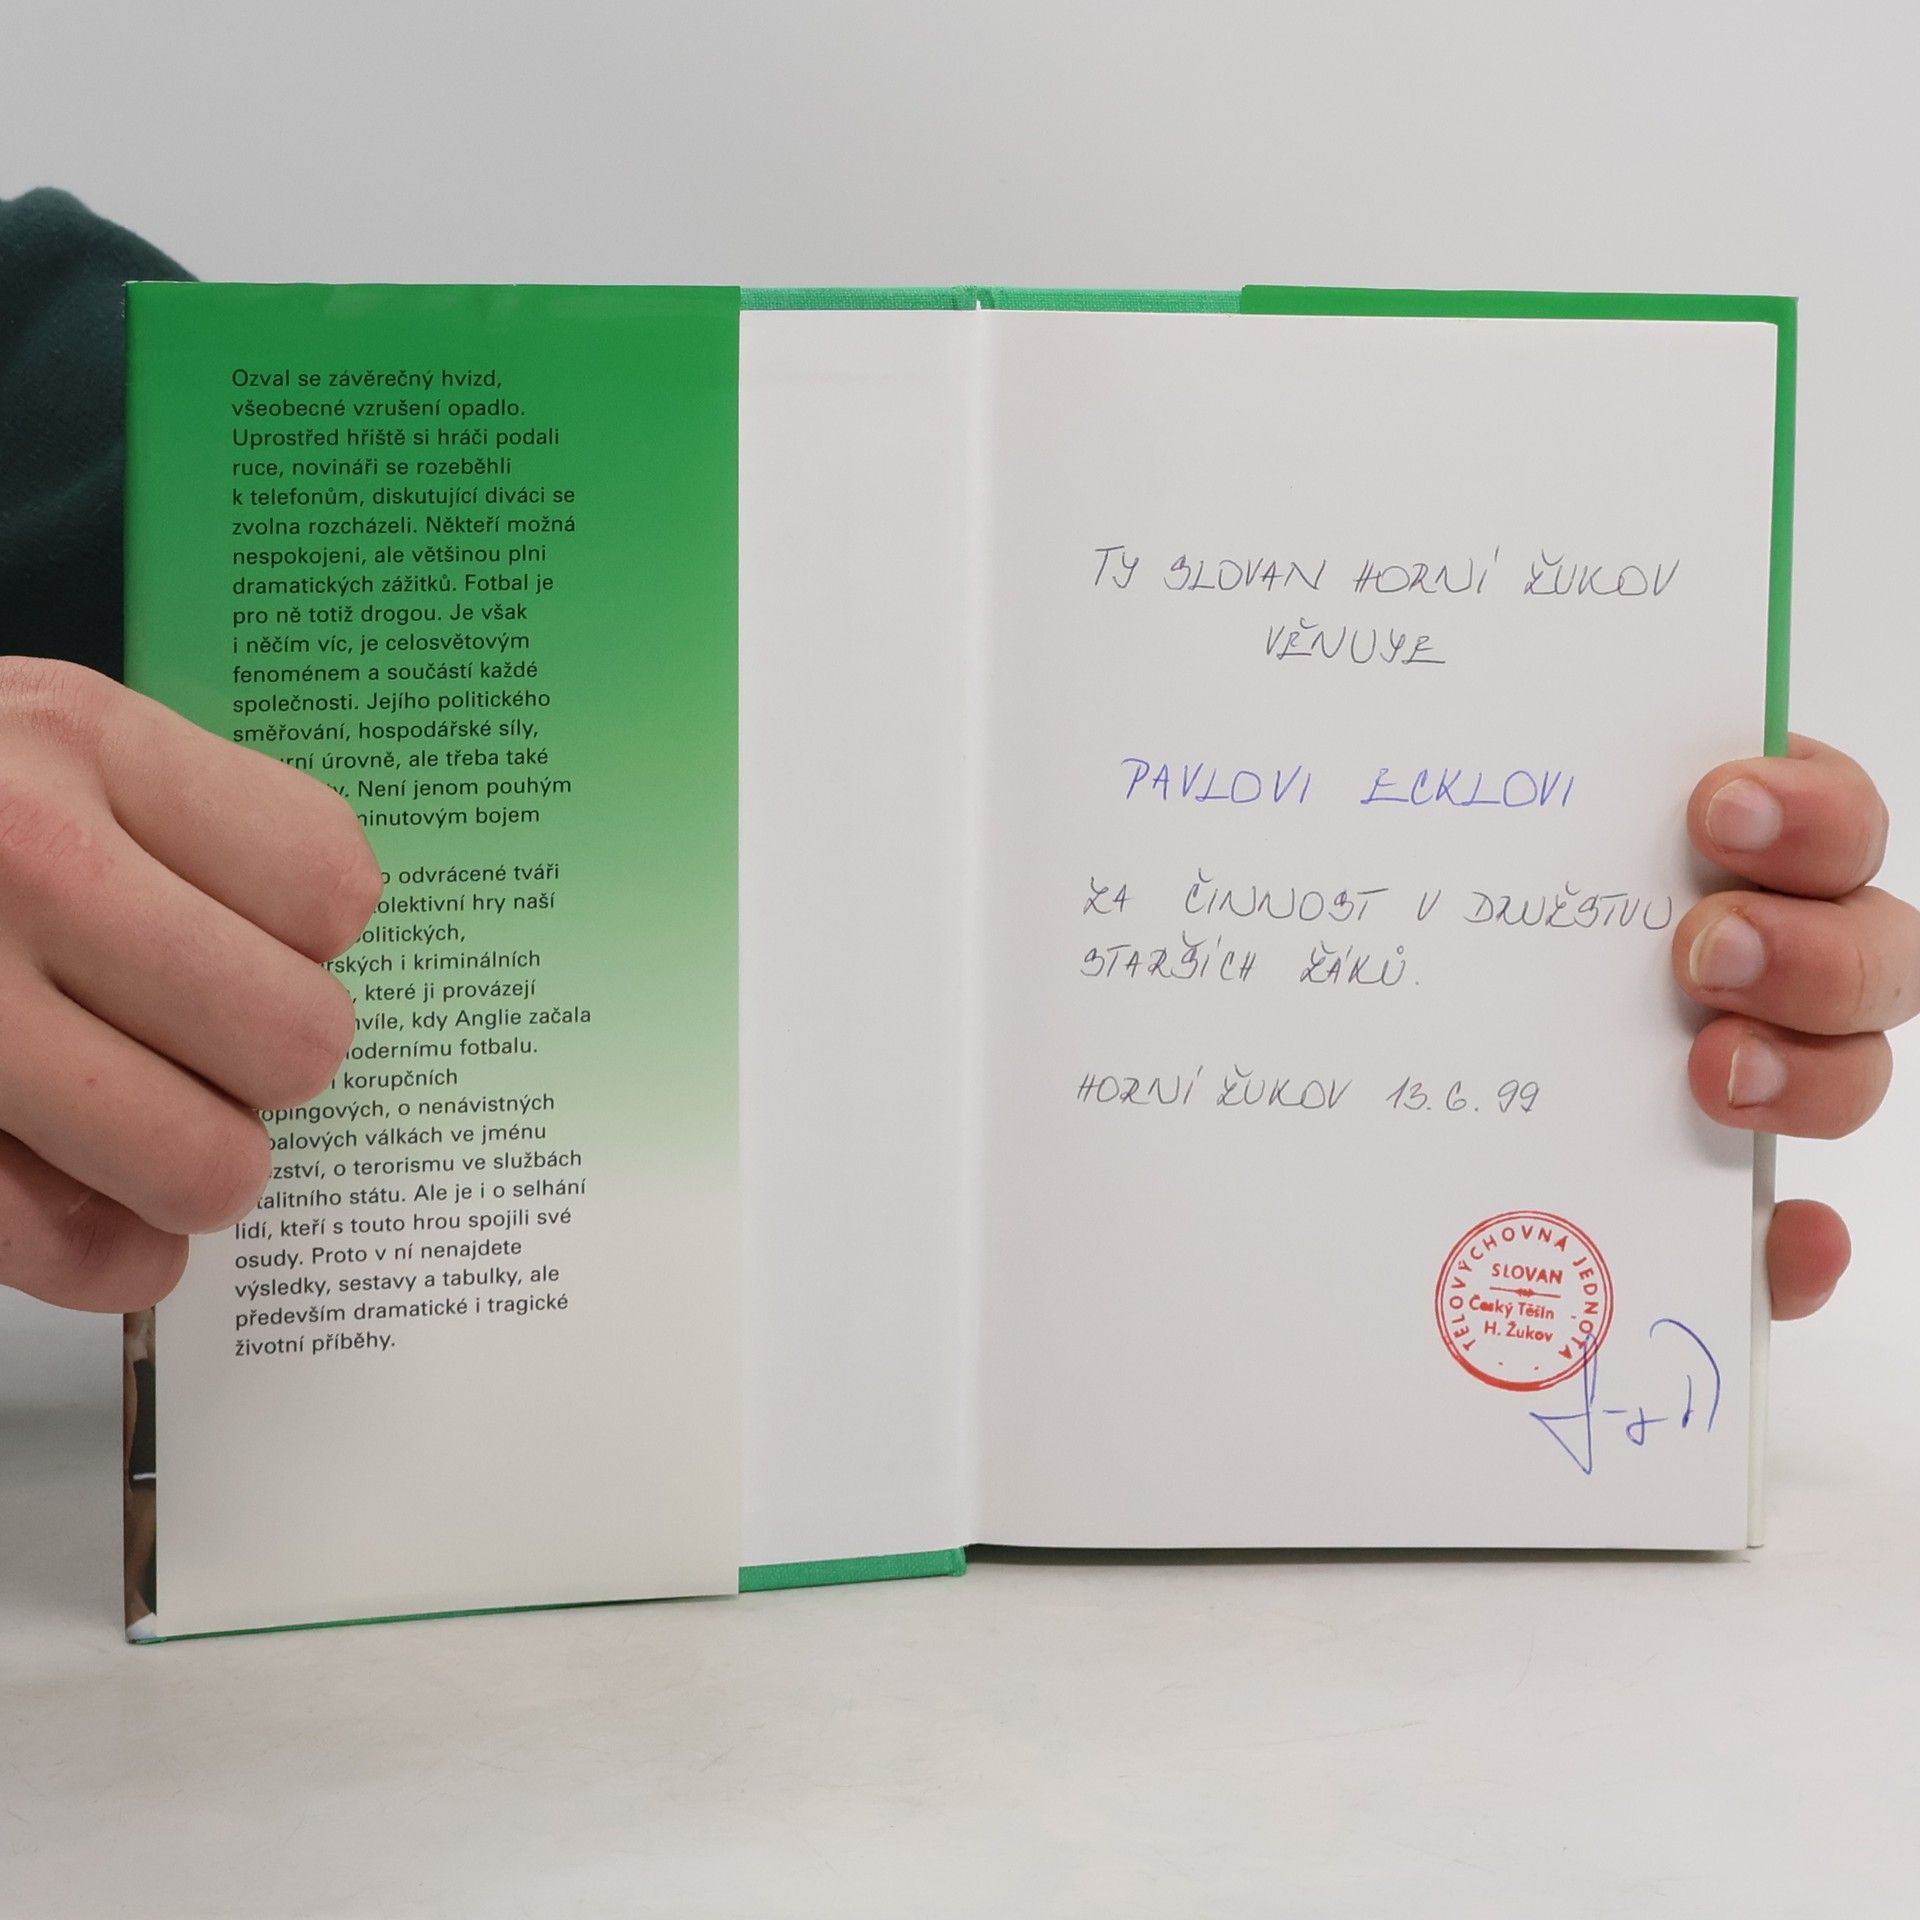 Ozval se závěrečný hvizd,
všeobecné vzrušení opadlo.
Uprostřed hřiště si hráči podali
ruce, novináři se rozeběhli
k telefonům, diskutující diváci se
zvolna rozcházeli. Někteří možná
nespokojeni, ale většinou plni
dramatických zážitků. Fotbal je
pro ně totiž drogou. Je však
i něčím víc, je celosvětovým
fenoménem a součástí každé
společnosti. Jejího politického
směřování, hospodářské síly,
úrovně, ale třeba také
Není jenom pouhým
bojem
odvrácené tváři
hry naší
i kriminálních
které ji provázejí
kdy Anglie začala
fotbalu.
korupčních
o nenávistných
válkách ve jménu
o terorismu ve službách
státu. Ale je i o selhání
lidí, kteří s touto hrou spojili své
osudy. Proto v ní nenajdete
výsledky, sestavy a tabulky, ale
především dramatické i tragické
životní příběhy.
TJ SLOVAN HORNÍ ŽUKOV
VĚNUJE
PAVLOVI ECKLOVI
ZA ČINNOST V DRUŽSTVU
STARŠÍCH ŽÁKŮ.
HORNÍ ŽUKOV 13.6.99
TĚLOVÝCHOVNÁ JEDNOTA
SLOVAN
Český Těšín
H. Žukov